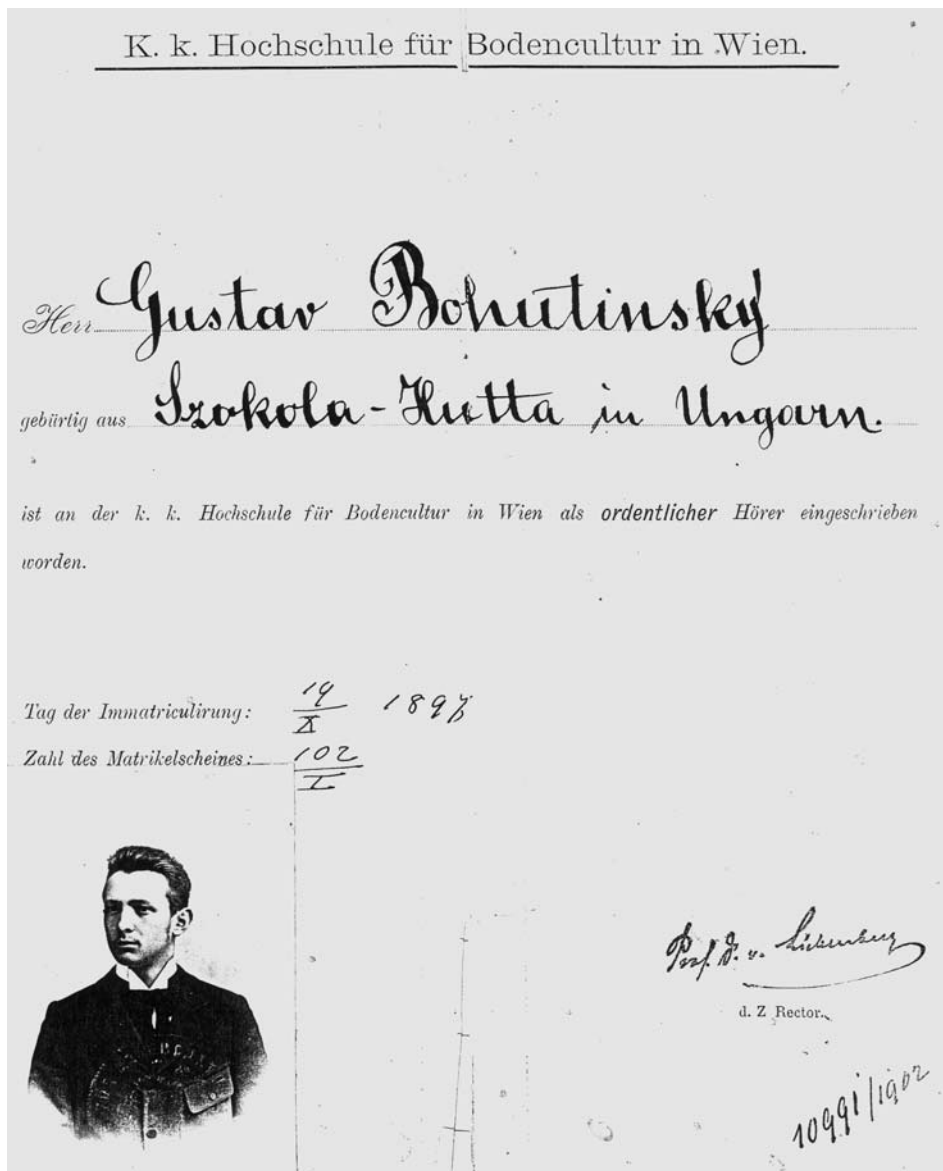 K. k. Hochschule für Bodencultur in Wien.
Herr Gustav Bohutinský
gebürtig aus Szokola-Hutta in Ungarn.
ist an der k. k. Hochschule für Bodencultur in Wien als ordentlicher Hörer eingeschrieben
worden.
Tag der Immatriculirung: 19/X 1897
Zahl des Matrikelscheines: 102/I
Prof. D. v.
d. Z Rector.
10991/1902